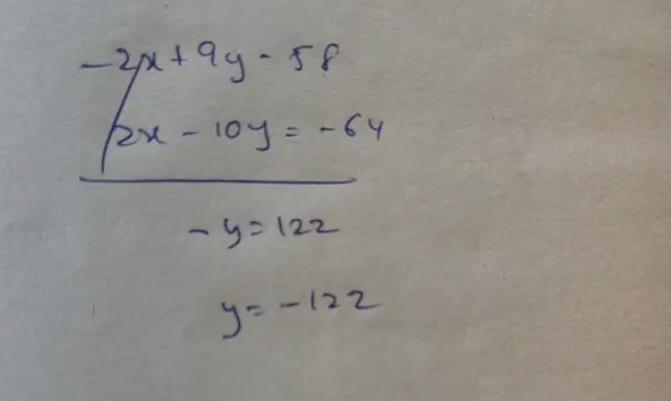 -2x + 9y - 58
2x - 10y = -64
- y = 122
y = -122